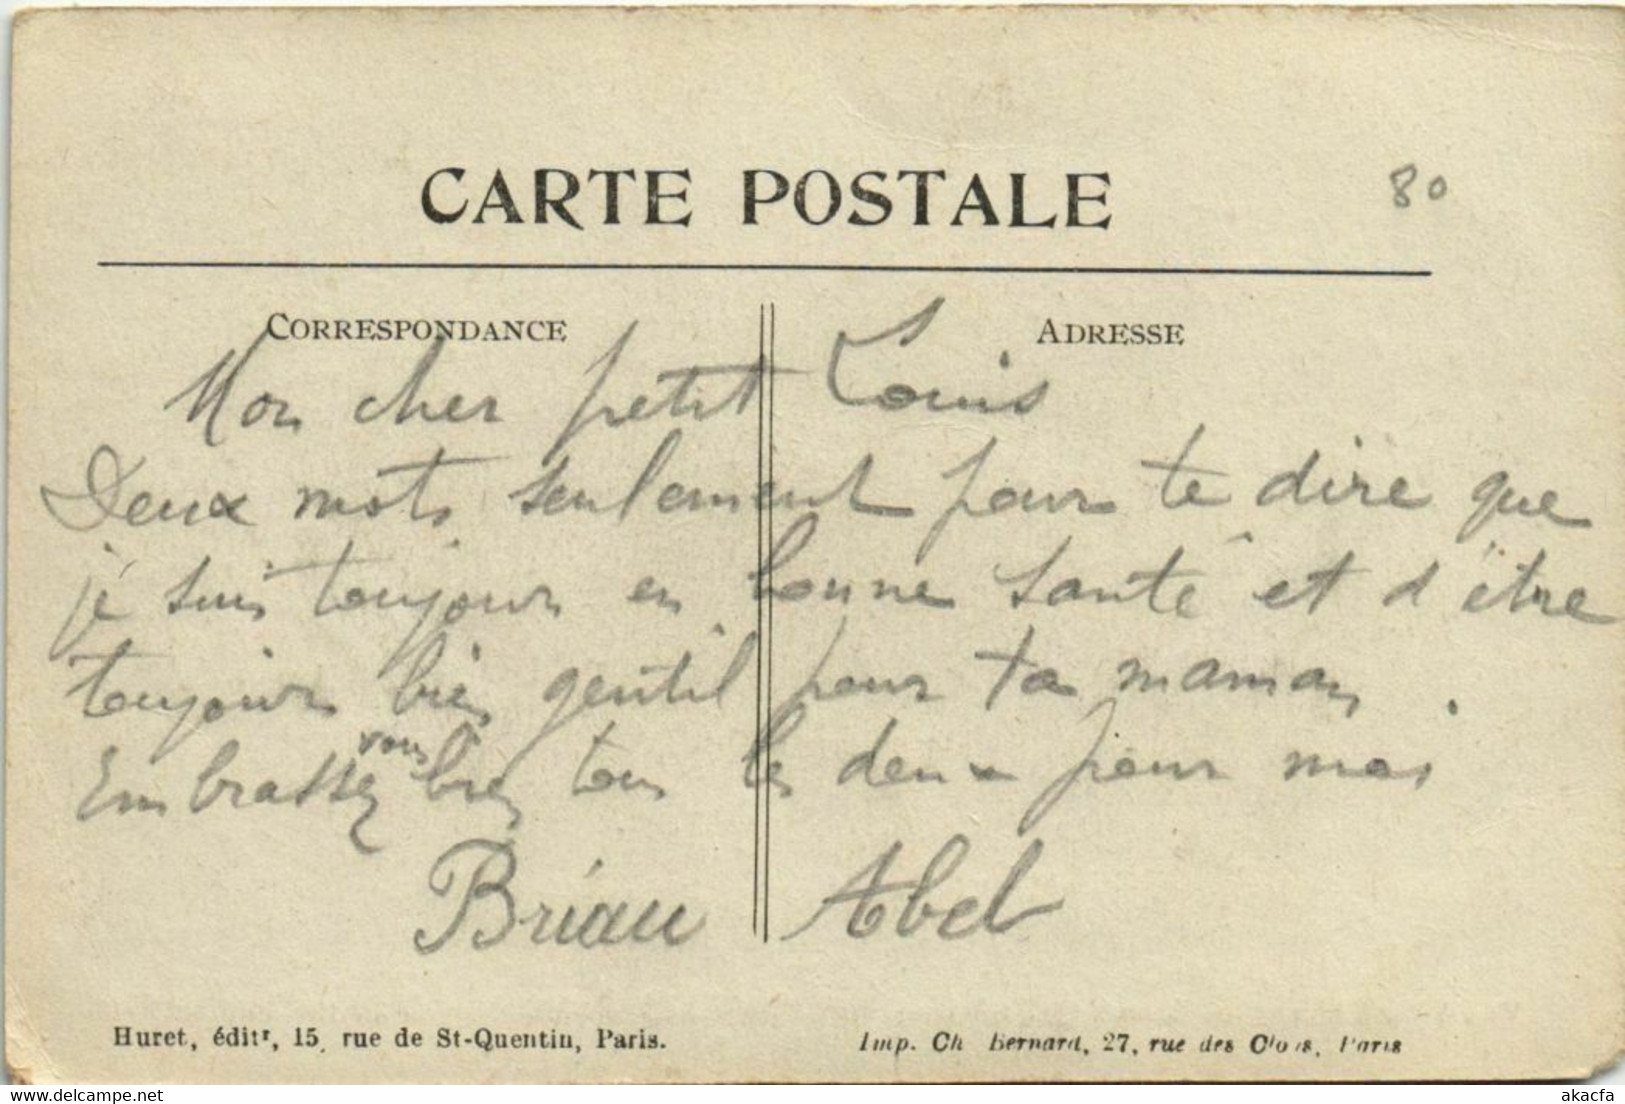 CARTE POSTALE
80
CORRESPONDANCE
ADRESSE
Mon cher petit Louis
Deux mots seulement pour te dire que
je suis toujours en bonne santé et d'être
toujours bien gentil pour ta maman.
Embrassez vous bien tous les deux pour moi
Briau Abel
Huret, éditr, 15, rue de St-Quentin, Paris.
Imp. Ch Bernard, 27, rue des Cloys, Paris
akacfa
delcampe.net